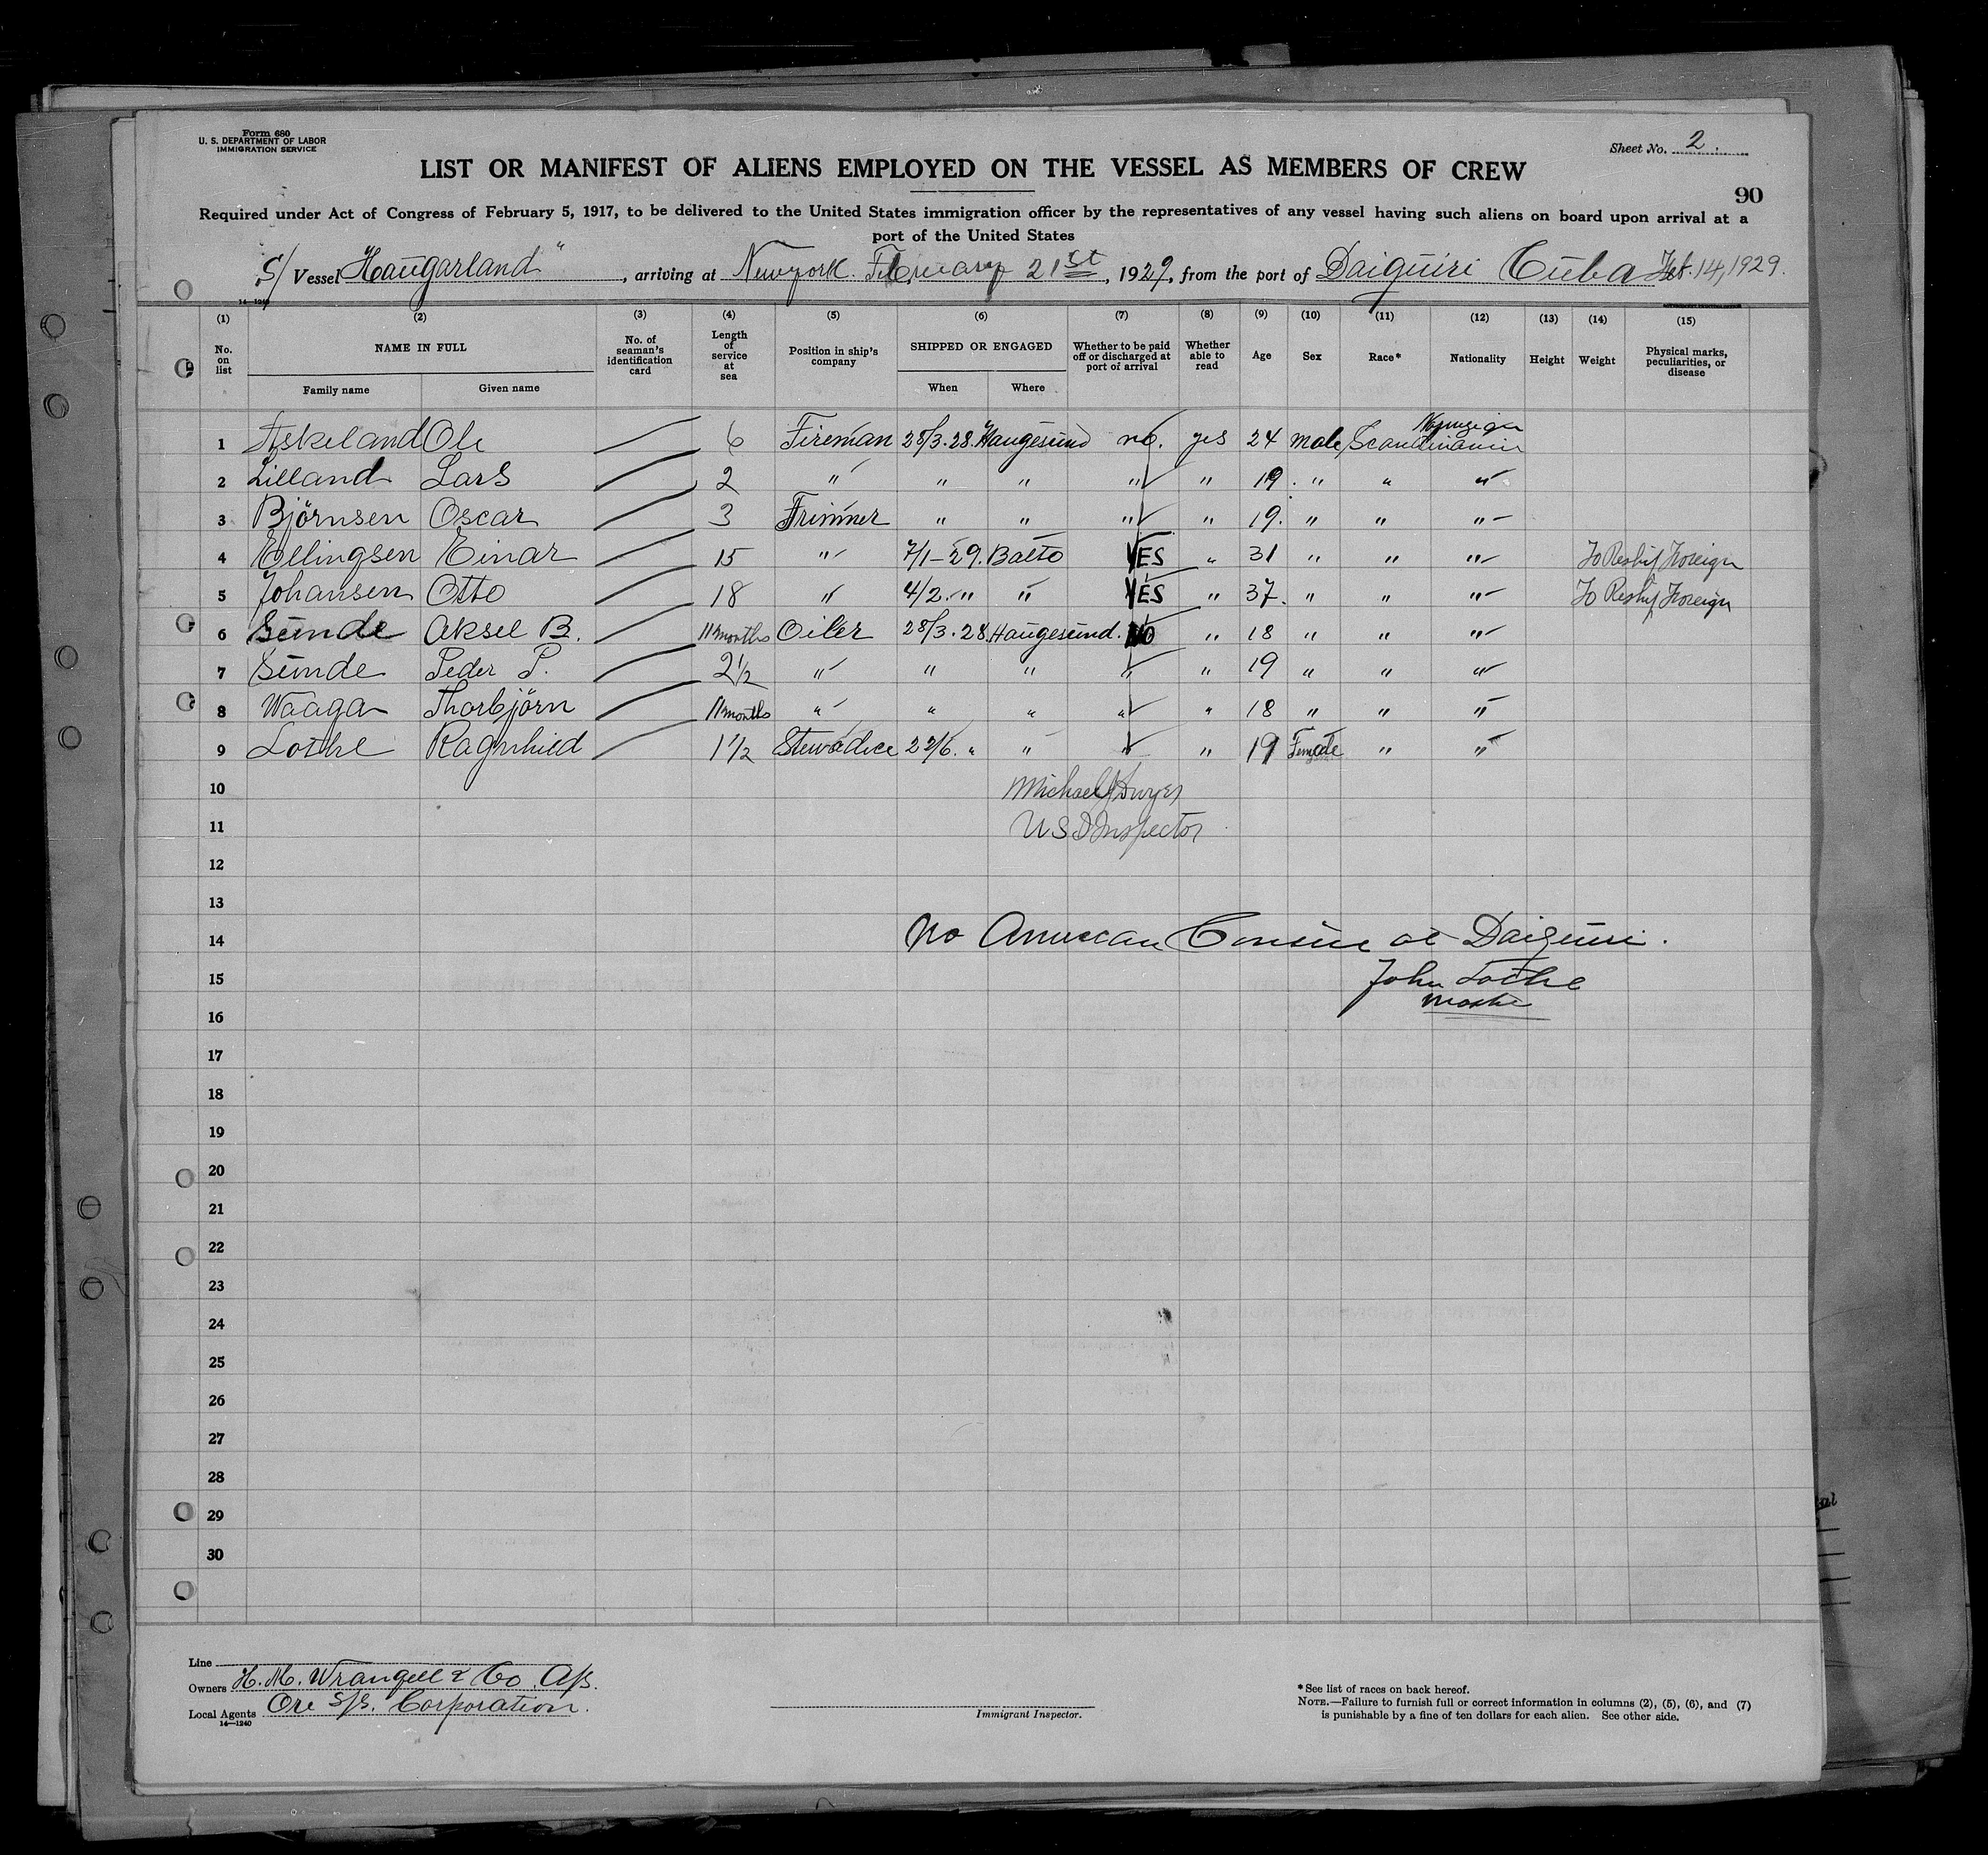 Form 680
U. S. DEPARTMENT OF LABOR
IMMIGRATION SERVICE
Sheet No. 2.
LIST OR MANIFEST OF ALIENS EMPLOYED ON THE VESSEL AS MEMBERS OF CREW
90
Required under Act of Congress of February 5, 1917, to be delivered to the United States immigration officer by the representatives of any vessel having such aliens on board upon arrival at a
port of the United States
S/ Vessel Haugarland", arriving at Newyork February 21st, 1929, from the port of Daiquiri Cuba Feb. 14, 1929.
14—1240
(1) (2) (3) (4) (5) (6) (7) (8) (9) (10) (11) (12) (13) (14) (15)
No. on list NAME IN FULL Family name Given name No. of seaman's identification card Length of service at sea Position in ship's company SHIPPED OR ENGAGED When Where Whether to be paid off or discharged at port of arrival Whether able to read Age Sex Race* Nationality Height Weight Physical marks, peculiarities, or disease
1 Askeland Ole 6 Fireman 28/3.28. Haugesund no. yes 24 male Scandinavin Norwegian
2 Lilland Lars 2 " " " " " 19. " " "
3 Björnsen Oscar 3 Trimmer " " " " 19. " " "
4 Ellingsen Einar 15 " 7/1-29. Balto YES " 31 " " " To Reship Foreign
5 Johansen Otto 18 " 4/2. " " YES " 37. " " " To Reship Foreign
6 Sunde Aksel B. 11 months Oiler 28/3.28. Haugesund. NO " 18 " " "
7 Sunde Peder P. 2 1/2 " " " " " 19 " " "
8 Waaga Thorbjörn 11 months " " " " " 18 " " "
9 Lothe Ragnhild 1 1/2 Stewadice 22/6. " " " " 19 Female " "
10 Michael J Dwyer
11 U S I Inspector
12
13
14 No American Consul at Daiquiri.
15 John Lothe
16 Master
17
18
19
20
21
22
23
24
25
26
27
28
29
30
Line
Owners H. M. Wrangell & Co. A/s.
Local Agents Ore S/s. Corporation.
14—1240
Immigrant Inspector.
*See list of races on back hereof.
NOTE.—Failure to furnish full or correct information in columns (2), (5), (6), and (7)
is punishable by a fine of ten dollars for each alien. See other side.